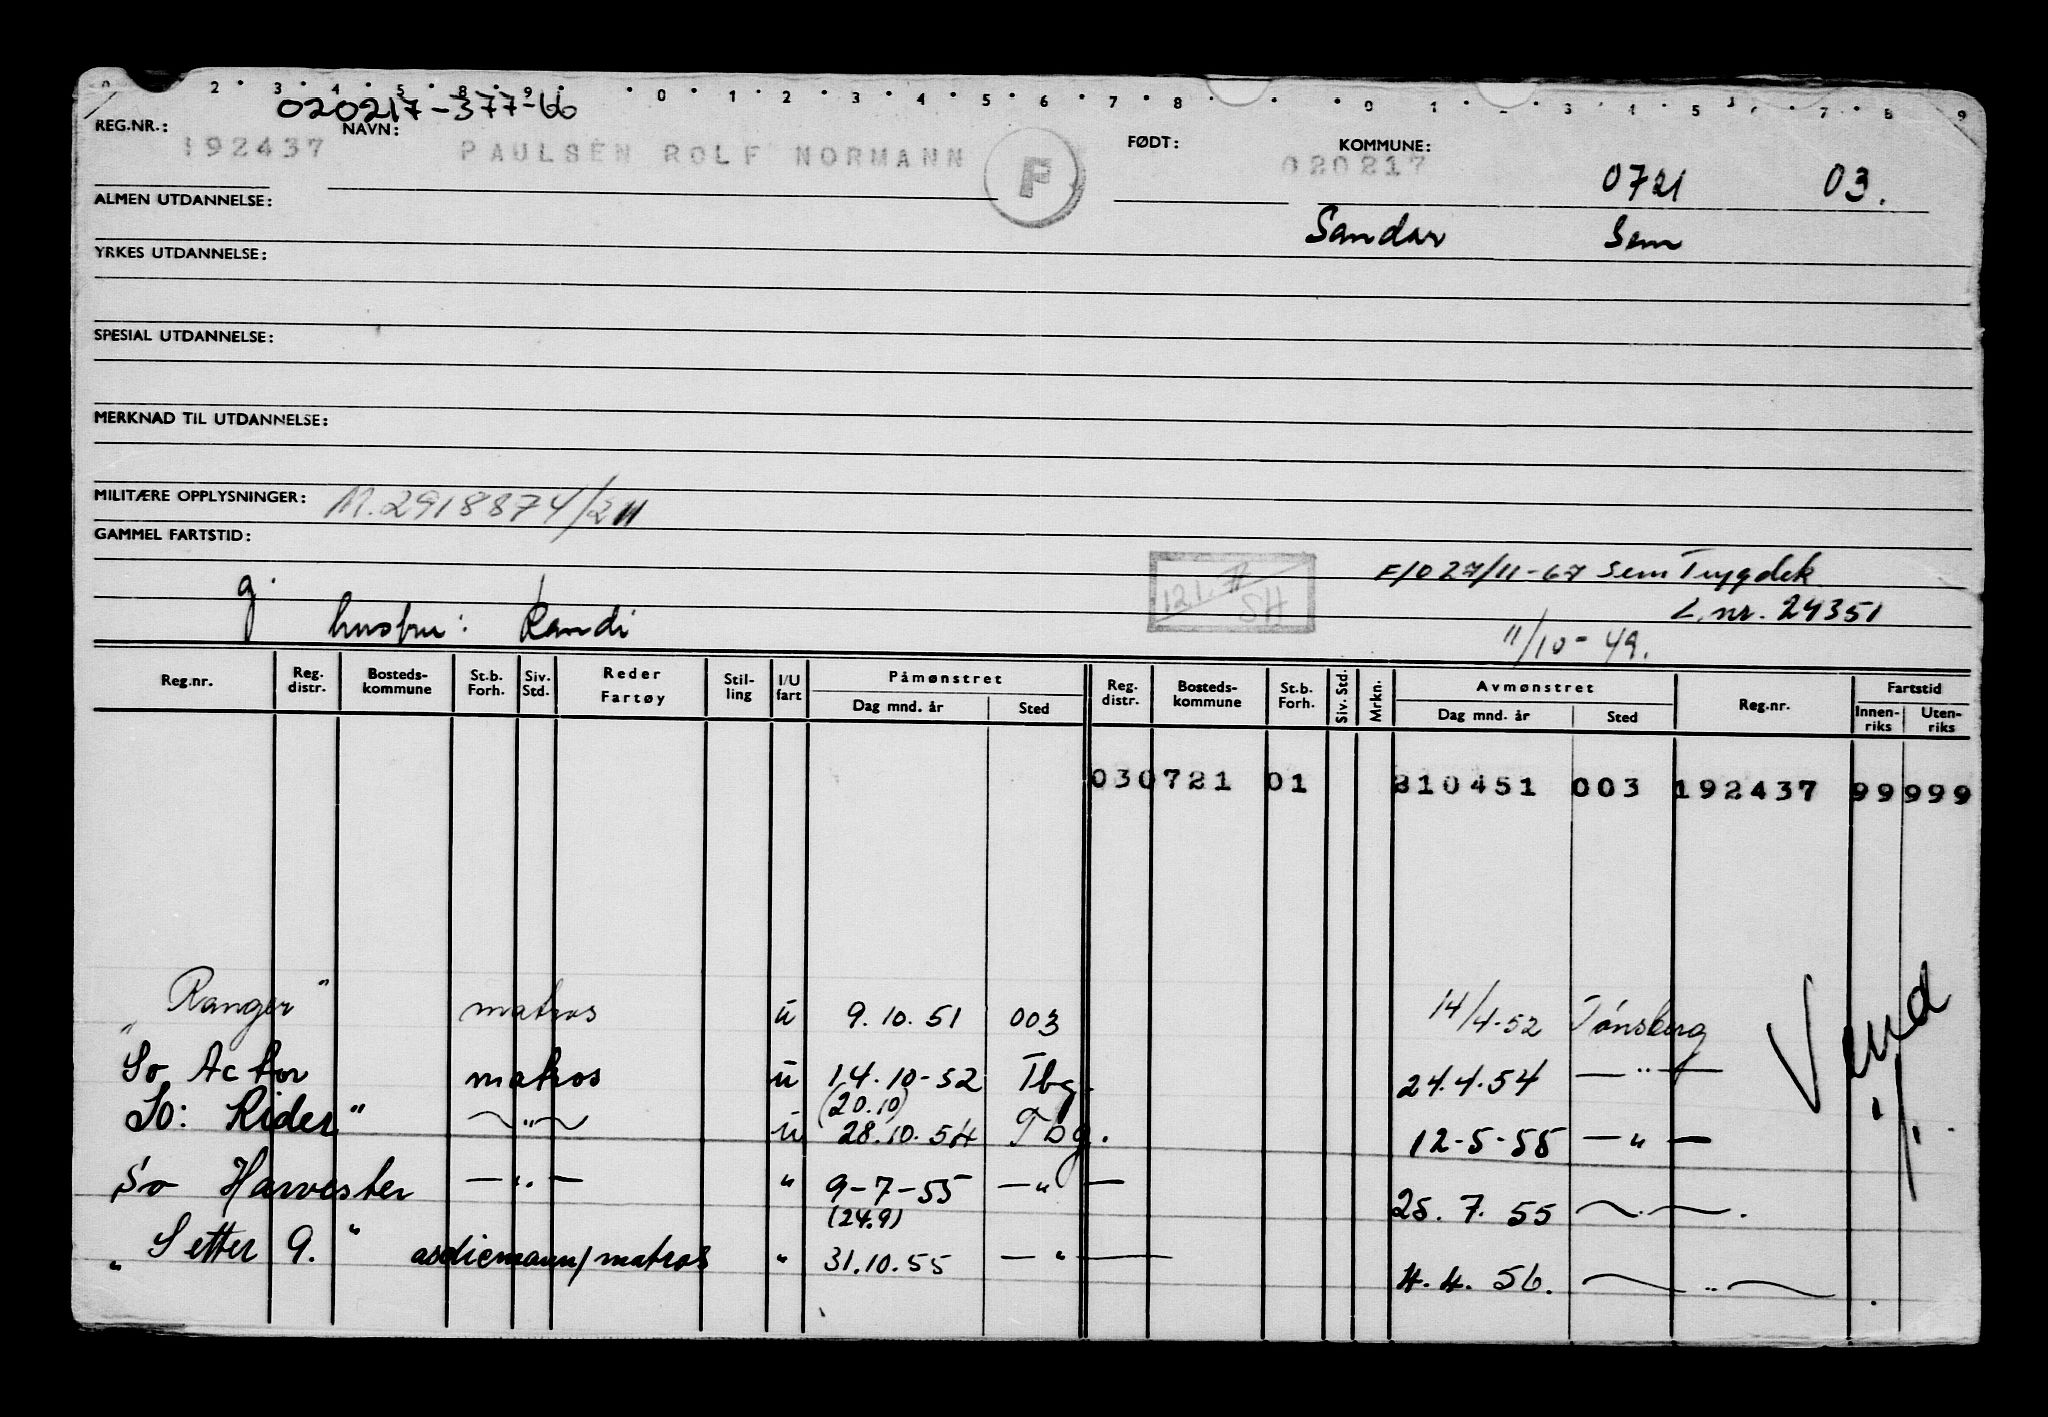 2 3 4 5 8 9 0 1 2 3 4 5 6 7 8 0 1 3 4 5 7 8 9
020217-377-66
REG.NR.: NAVN: FØDT: KOMMUNE:
192437 PAULSEN ROLF NORMANN F 020217 0721 03.
ALMEN UTDANNELSE: Sandar Sem
YRKES UTDANNELSE:
SPESIAL UTDANNELSE:
MERKNAD TIL UTDANNELSE:
MILITÆRE OPPLYSNINGER: M.2918874/211
GAMMEL FARTSTID:
F/D 27/11-67 Sem Trygdek
L.nr. 24351
g. hustru: Randi 12.1. SH 11/10-49.
Reg.nr. Reg. distr. Bosteds- kommune St.b. Forh. Siv. Std. Reder Fartøy Stil- ling I/U fart Påmønstret Dag mnd. år Sted Reg. distr. Bosteds- kommune St.b. Forh. Siv. Std. Mrkn. Avmønstret Dag mnd. år Sted Reg.nr. Fartstid Innen- riks Uten- riks
030721 01 310451 003 192437 99 999
"Ranger" matros u 9.10.51 003 14/4-52 Tønsberg
So Actor matros u 14.10-52 Tbg. 24.4.54 — " —
(20.10)
So: Rider" — " — u 28.10.54 Tbg. 12-5-55 — " —
So Harvester — " — " 9-7-55 — " — 25.7.55 — " —.
(24.9)
"Setter 9." asdicmann/matros " 31.10.55 — " — 4.4.56. — " —.
Vend